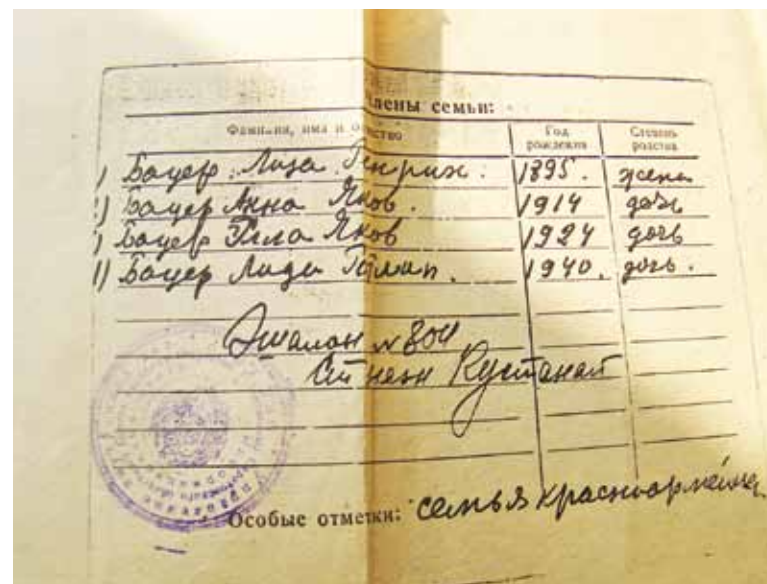 лены семьи:
Фамилия, имя и отчество Год рождения Степень родства
) Бауер Лиза Генрих. 1895. жена
) Бауер Анна Яков. 1914 дочь
) Бауер Яков 1924 дочь
) Бауер Лида 1940. дочь.
Эшалон № 804
Кустанай
Особые отметки: семья красноармейца